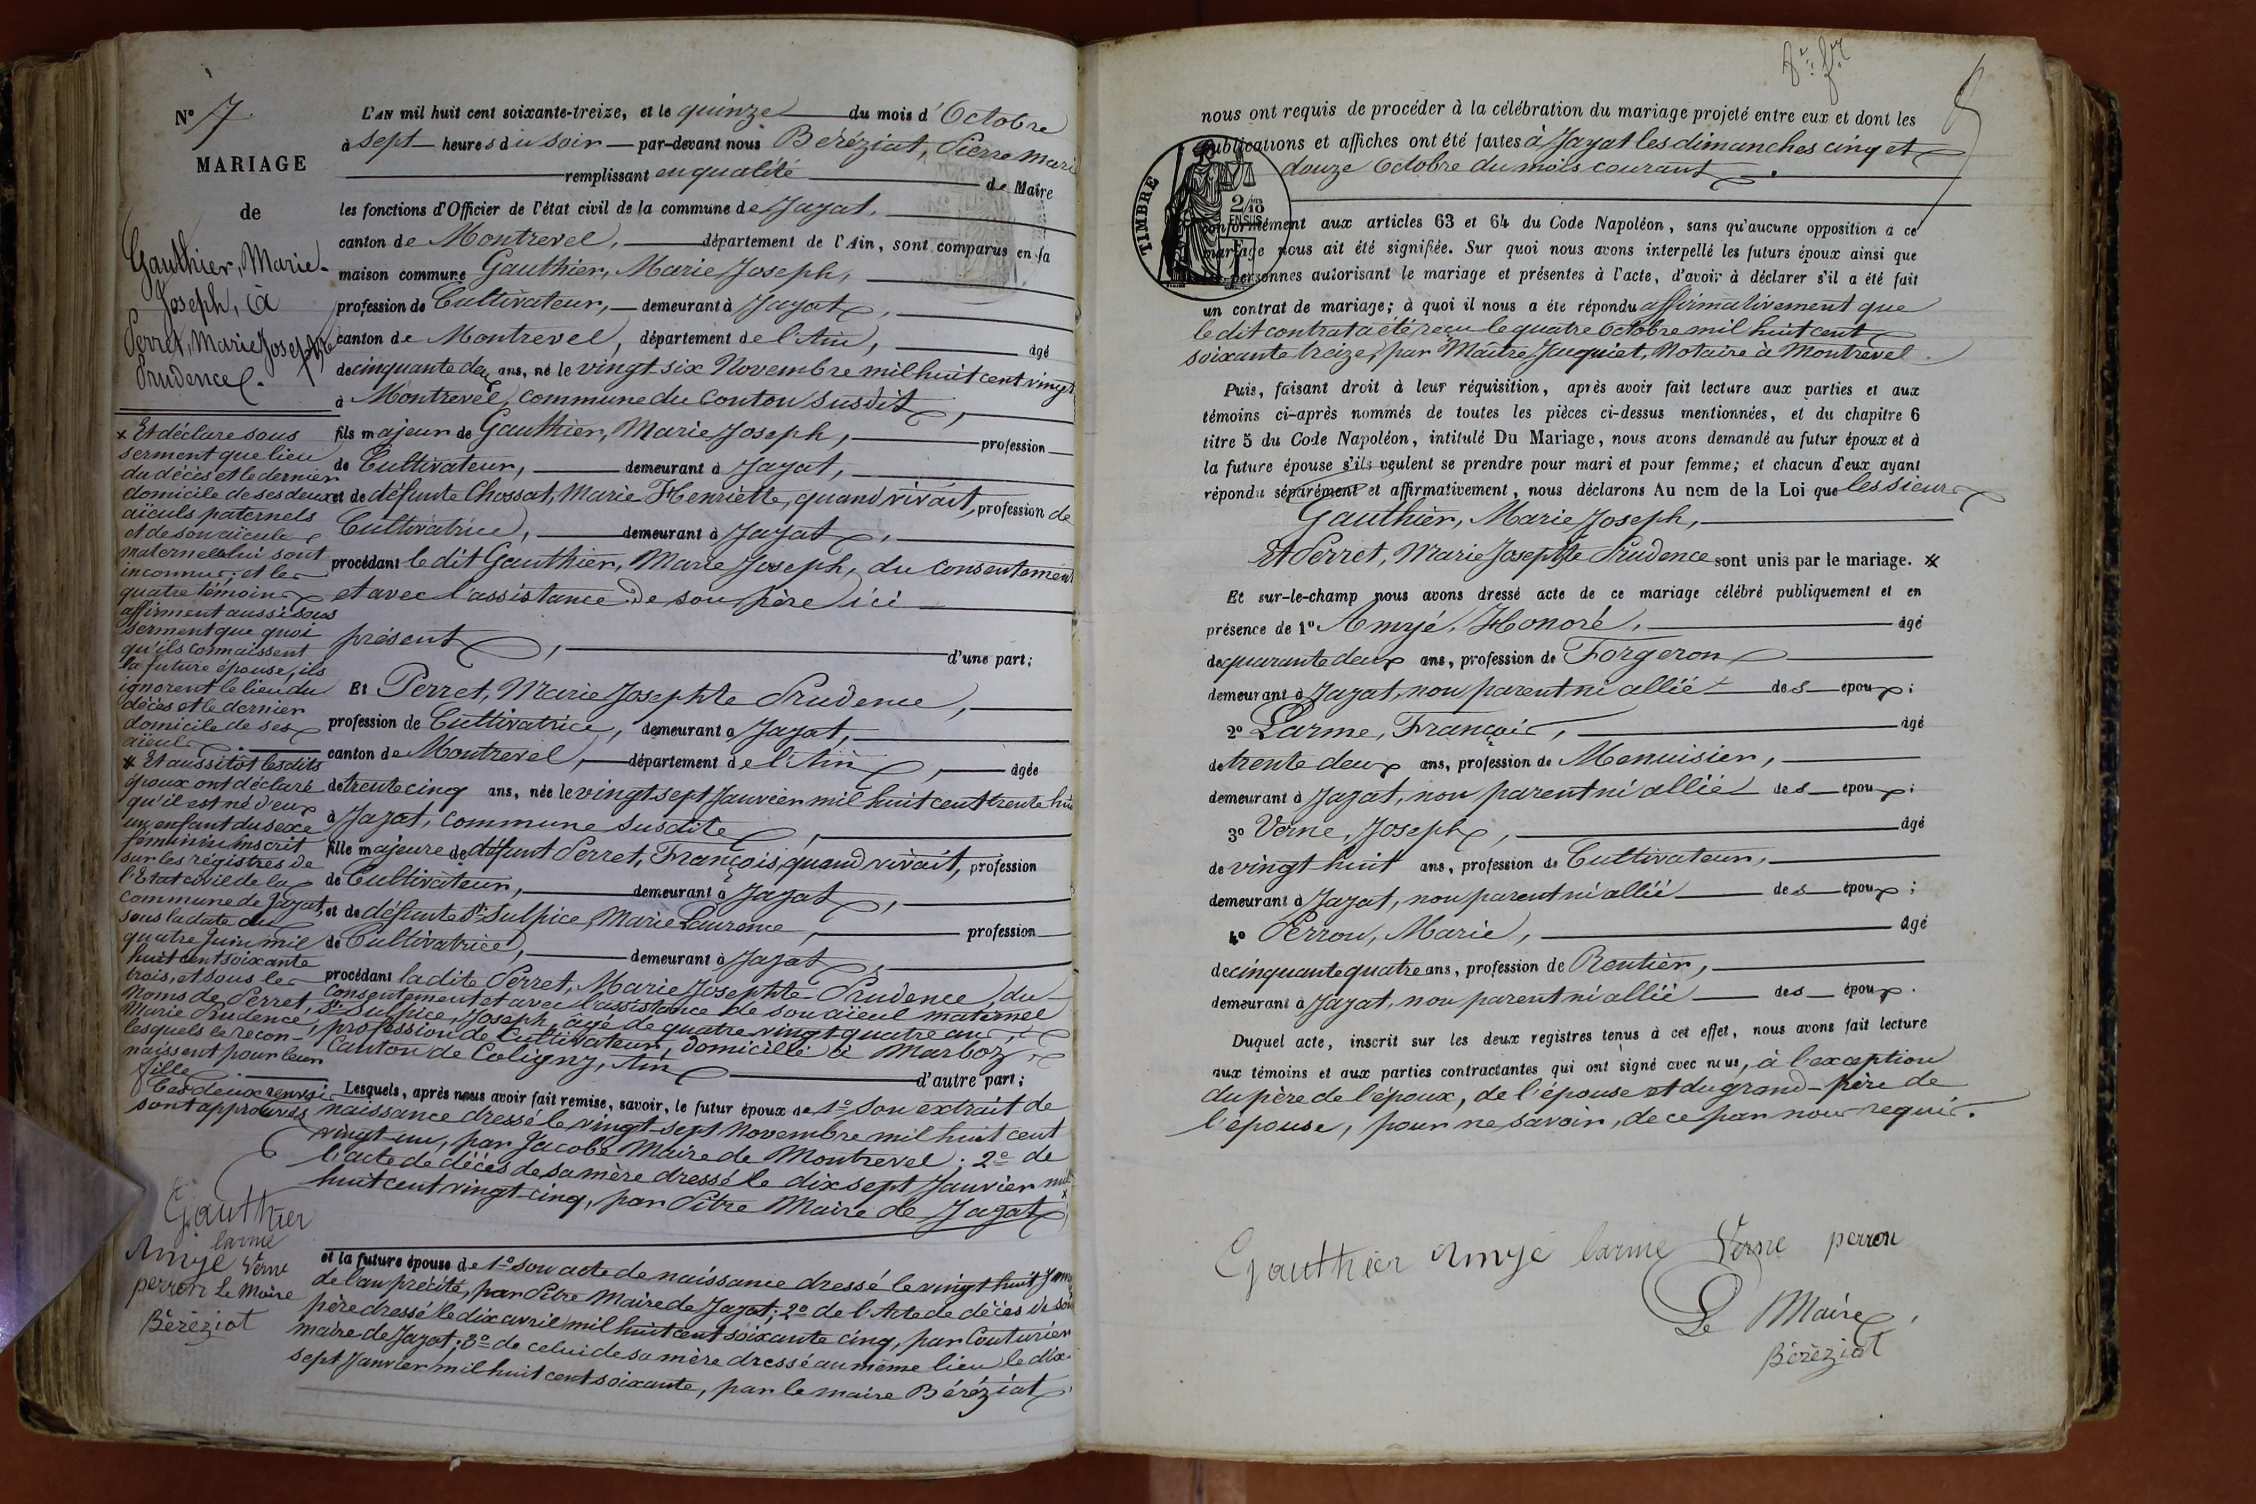 Nº 7
MARIAGE
de
Gauthier, Marie-
Joseph, à
Perret, Marie Josephte
Prudence.
x Et déclare sous
serment que lieu
du décès et le dernier
domicile de ses deux
aïeuls paternels
et de son aïeule
maternelle lui sont
inconnus; et les
quatre témoins
affirment aussi sous
serment que quoi
qu'ils connaissent
la future épouse, ils
ignorent le lieu du
décès et le dernier
domicile de ses
aïeuls.
* Et aussitôt lesdits
époux ont déclaré
qu'il est né d'eux
un enfant du sexe
féminin inscrit
sur les registres de
l'Etat civil de la
commune de Jayat,
sous la date du
quatre Juin mil
huit cent soixante
trois, et sous les
noms de Perret,
Marie Prudence,
lesquels le recon-
naissent pour leur
fille.
Ces deux renvois
sont approuvés
Gauthier
larme
Amyé Verne
perron Le Maire
Béréziat
L'AN mil huit cent soixante-treize, et le quinze du mois d'Octobre
à sept heures du soir par-devant nous Béréziat, Pierre Marie
remplissant en qualité de Maire
les fonctions d'Officier de l'état civil de la commune de Jayat,
canton de Montrevel, département de l'Ain, sont comparus en la
maison commune Gauthier, Marie Joseph,
profession de Cultivateur, demeurant à Jayat,
canton de Montrevel, département de l'Ain, âgé
de cinquante deux ans, né le vingt-six Novembre mil huit cent vingt
à Montrevel, commune du Conton susdit,
fils majeur de Gauthier, Marie Joseph, profession
de Cultivateur, demeurant à Jayat,
et de défunte Chossat, Marie Henriette, quand vivait, profession de
Cultivatrice, demeurant à Jayat,
procédant le dit Gauthier, Marie Joseph, du consentement
et avec l'assistance de son père ici
présent, d'une part;
Et Perret, Marie Josephte Prudence,
profession de Cultivatrice, demeurant à Jayat,
canton de Montrevel, département de l'Ain, âgée
de trente cinq ans, née le vingt sept Janvier mil huit cent trente huit
à Jayat, commune susdite,
fille majeure de défunt Perret, François, quand vivait, profession
de Cultivateur, demeurant à Jayat,
et de défunte St Sulpice, Marie Laurence, profession
de Cultivatrice, demeurant à Jayat,
procédant la dite Perret, Marie Josephte-Prudence, du
consentement et avec l'assistance de son aïeul maternel
St Sulpice, Joseph âgé de quatre vingt-quatre ans,
profession de Cultivateur, domicilié à Marboz,
Canton de Coligny, Ain d'autre part;
Lesquels, après nous avoir fait remise, savoir, le futur époux de 1º Son extrait de
naissance dressé le vingt-sept Novembre mil huit cent
vingt-un, par Jacobé Maire de Montrevel; 2º de
l'acte de décès de sa mère dressé le dix sept Janvier mil
huit cent vingt-cinq, par Pitre Maire de Jayat x
et la future épouse de 1º son acte de naissance dressé le vingt huit Janv
de l'an précité, par Pitre Maire de Jayat; 2º de l'Acte de décès de son
père dressé le dix avril mil huit cent soixante cinq, par Couturier
maire de Jayat; 3º de celui de sa mère dressé au même lieu le dix-
sept Janvier mil huit cent soixante, par le maire Béréziat,
nous ont requis de procéder à la célébration du mariage projeté entre eux et dont les
publications et affiches ont été faites à Jayat les dimanches cinq et
douze Octobre du mois courant.
TIMBRE
2/10 EN SUS
conformément aux articles 63 et 64 du Code Napoléon, sans qu'aucune opposition à ce
mariage nous ait été signifiée. Sur quoi nous avons interpellé les futurs époux ainsi que
les personnes autorisant le mariage et présentes à l'acte, d'avoir à déclarer s'il a été fait
un contrat de mariage; à quoi il nous a été répondu affirmativement que
le dit contrat a été reçu le quatre Octobre mil huit cent
soixante treize, par Maître Jacquiet, Notaire à Montrevel.
Puis, faisant droit à leur réquisition, après avoir fait lecture aux parties et aux
témoins ci-après nommés de toutes les pièces ci-dessus mentionnées, et du chapitre 6
titre 5 du Code Napoléon, intitulé Du Mariage, nous avons demandé au futur époux et à
la future épouse s'ils veulent se prendre pour mari et pour femme; et chacun d'eux ayant
répondu séparément et affirmativement, nous déclarons Au nom de la Loi que les sieur
Gauthier, Marie Joseph,
Et Perret, Marie Josephte Prudence sont unis par le mariage. *
Et sur-le-champ nous avons dressé acte de ce mariage célébré publiquement et en
présence de 1º Amyé, Honoré, âgé
de quarante deux ans, profession de Forgeron
demeurant à Jayat, non parent ni allié des époux;
2º Larme, François, âgé
de trente deux ans, profession de Menuisier,
demeurant à Jayat, non parent ni allié des époux;
3º Verne, Joseph, âgé
de vingt-huit ans, profession de Cultivateur,
demeurant à Jayat, non parent ni allié des époux;
4º Perron, Marie, âgé
de cinquante quatre ans, profession de Rentier,
demeurant à Jayat, non parent ni allié des époux.
Duquel acte, inscrit sur les deux registres tenus à cet effet, nous avons fait lecture
aux témoins et aux parties contractantes qui ont signé avec nous, à l'exception
du père de l'époux, de l'épouse et du grand-père de
l'épouse, pour ne savoir, de ce par nous requis.
Gauthier Amyé larme Verne perron
Le Maire,
Béréziat